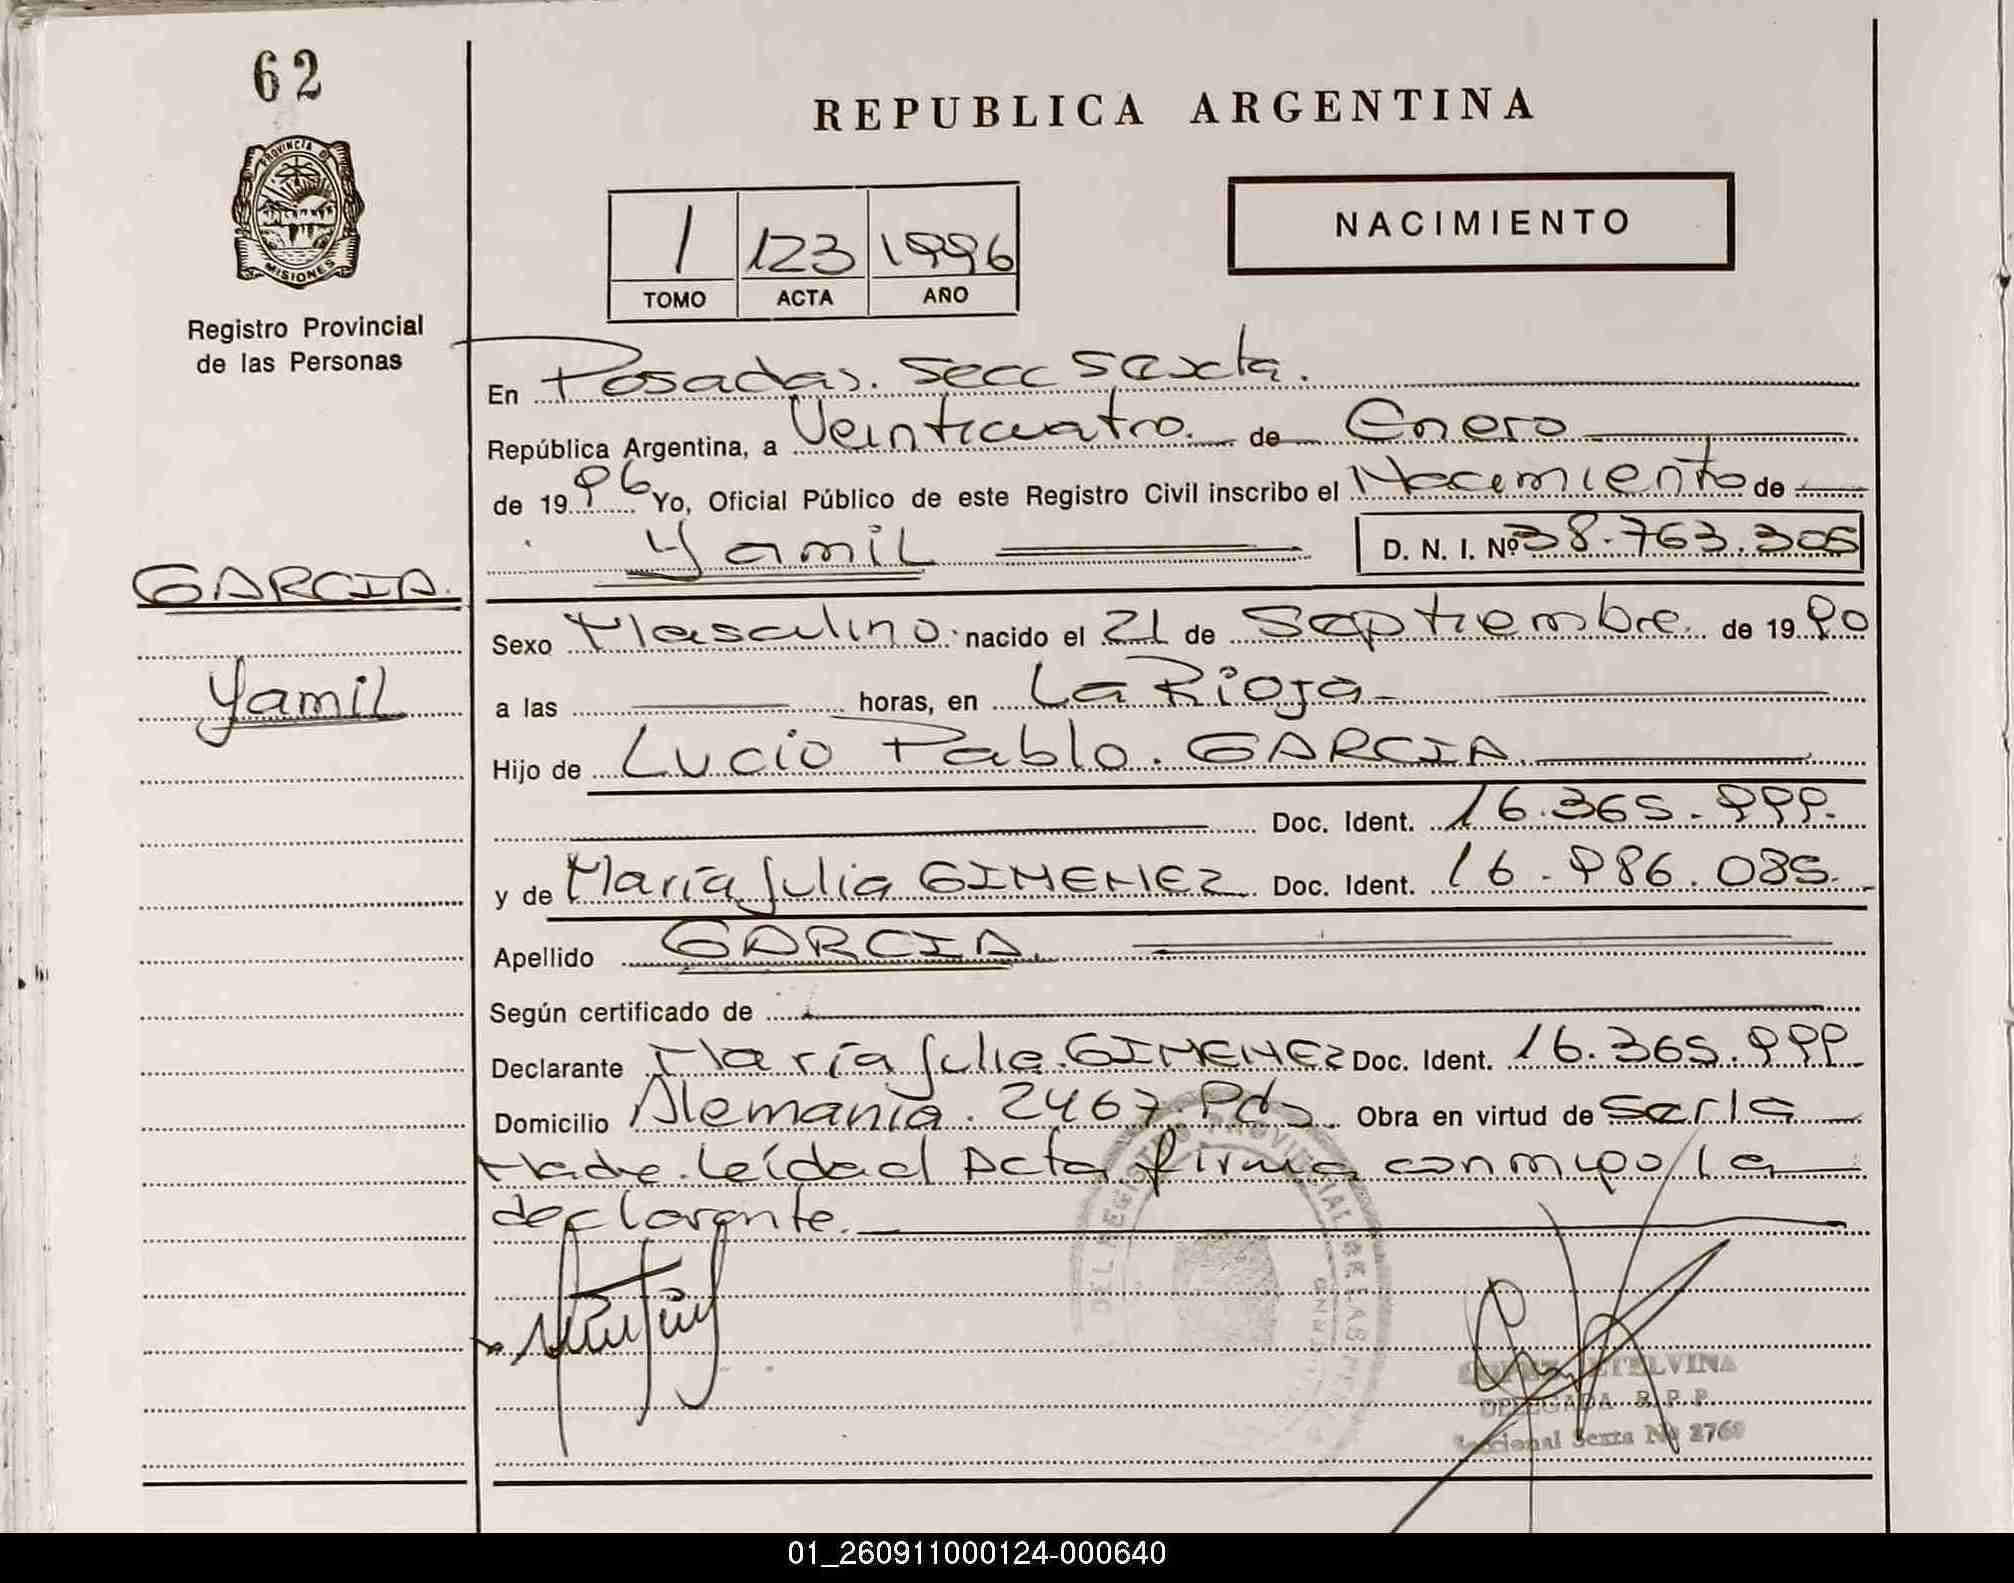 62
REPUBLICA ARGENTINA
PROVINCIA DE
MISIONES
Registro Provincial
de las Personas
1 123 1996
TOMO ACTA AÑO
NACIMIENTO
En Posadas. Secc Sexta.
República Argentina, a Veinticuatro de Enero
de 1996 Yo, Oficial Público de este Registro Civil inscribo el Nacimiento de
Yamil D. N. I. Nº 38.763.305
GARCIA.
Yamil
Sexo Masculino. nacido el 21 de Septiembre de 1990
a las horas, en La Rioja
Hijo de Lucio Pablo. GARCIA
Doc. Ident. 16.365.999.
y de María Julia GIMENEZ Doc. Ident. 16.986.085.
Apellido GARCIA.
Según certificado de
Declarante María Julia GIMENEZ Doc. Ident. 16.365.999
Domicilio Alemania. 2467. Pdas Obra en virtud de ser la
Madre. Leída el Acta firma conmigo la
declarante.
DEL REGISTRO PROVINCIAL DE LAS
ETELVINA
DELEGADA R. P. P.
Seccional Sexta Nº 276
01_260911000124-000640